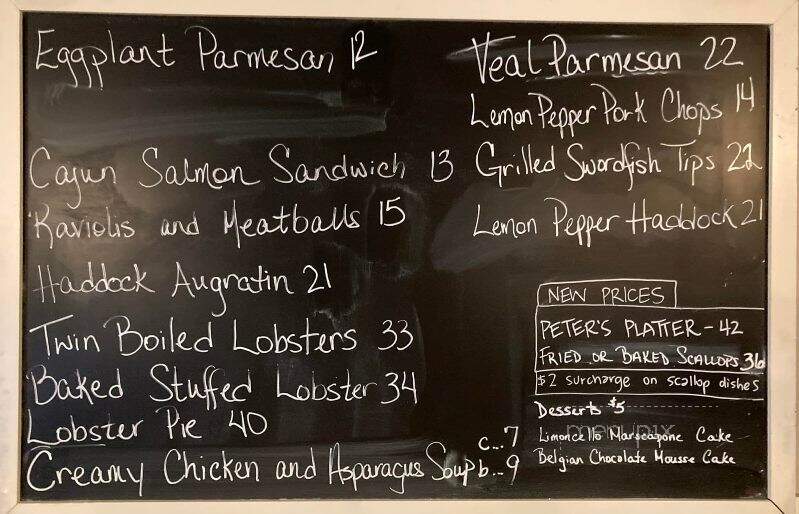 Eggplant Parmesan 12
Cajun Salmon Sandwich 13
Raviolis and Meatballs 15
Haddock Augratin 21
Twin Boiled Lobsters 33
Baked Stuffed Lobster 34
Lobster Pie 40
Creamy Chicken and Asparagus Soup c...7
b...9
Veal Parmesan 22
Lemon Pepper Pork Chops 14
Grilled Swordfish Tips 22
Lemon Pepper Haddock 21
NEW PRICES
PETER'S PLATTER - 42
FRIED OR BAKED SCALLOPS 36
$2 surcharge on scallop dishes
Desserts $5
menupix
Limoncello Marscapone Cake
Belgian Chocolate Mousse Cake